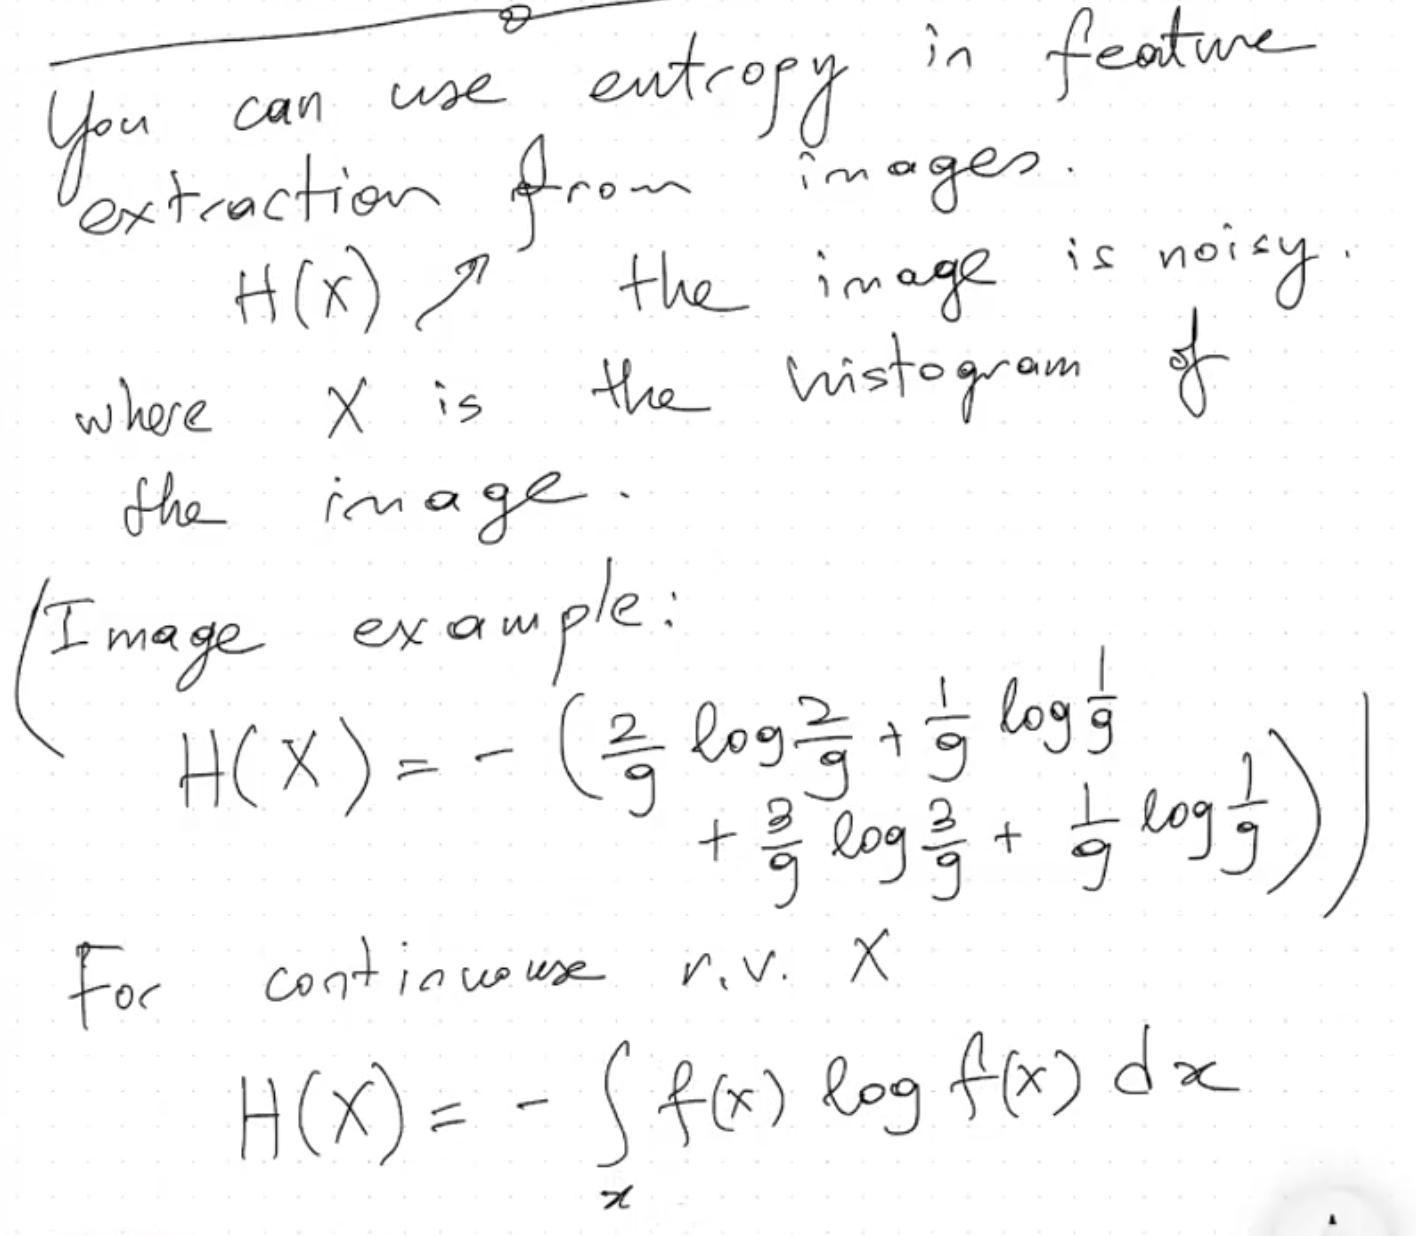 You can use entropy in feature
extraction from images.
H(X) ↗ the image is noisy.
where X is the histogram of
the image.
(Image example:
H(X) = - (2/9 log 2/9 + 1/9 log 1/9
+ 3/9 log 3/9 + 1/9 log 1/9))
For continuouse r.v. X
H(X) = - ∫ f(x) log f(x) dx
x